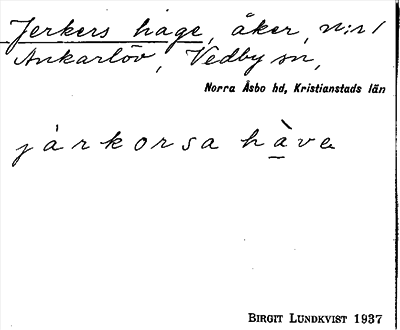 Jerkers hage, åker, n:r 1
Ankarlöv, Vedby sn,
Norra Åsbo hd, Kristianstads län
járkorsa hàve
BIRGIT LUNDKVIST 1937